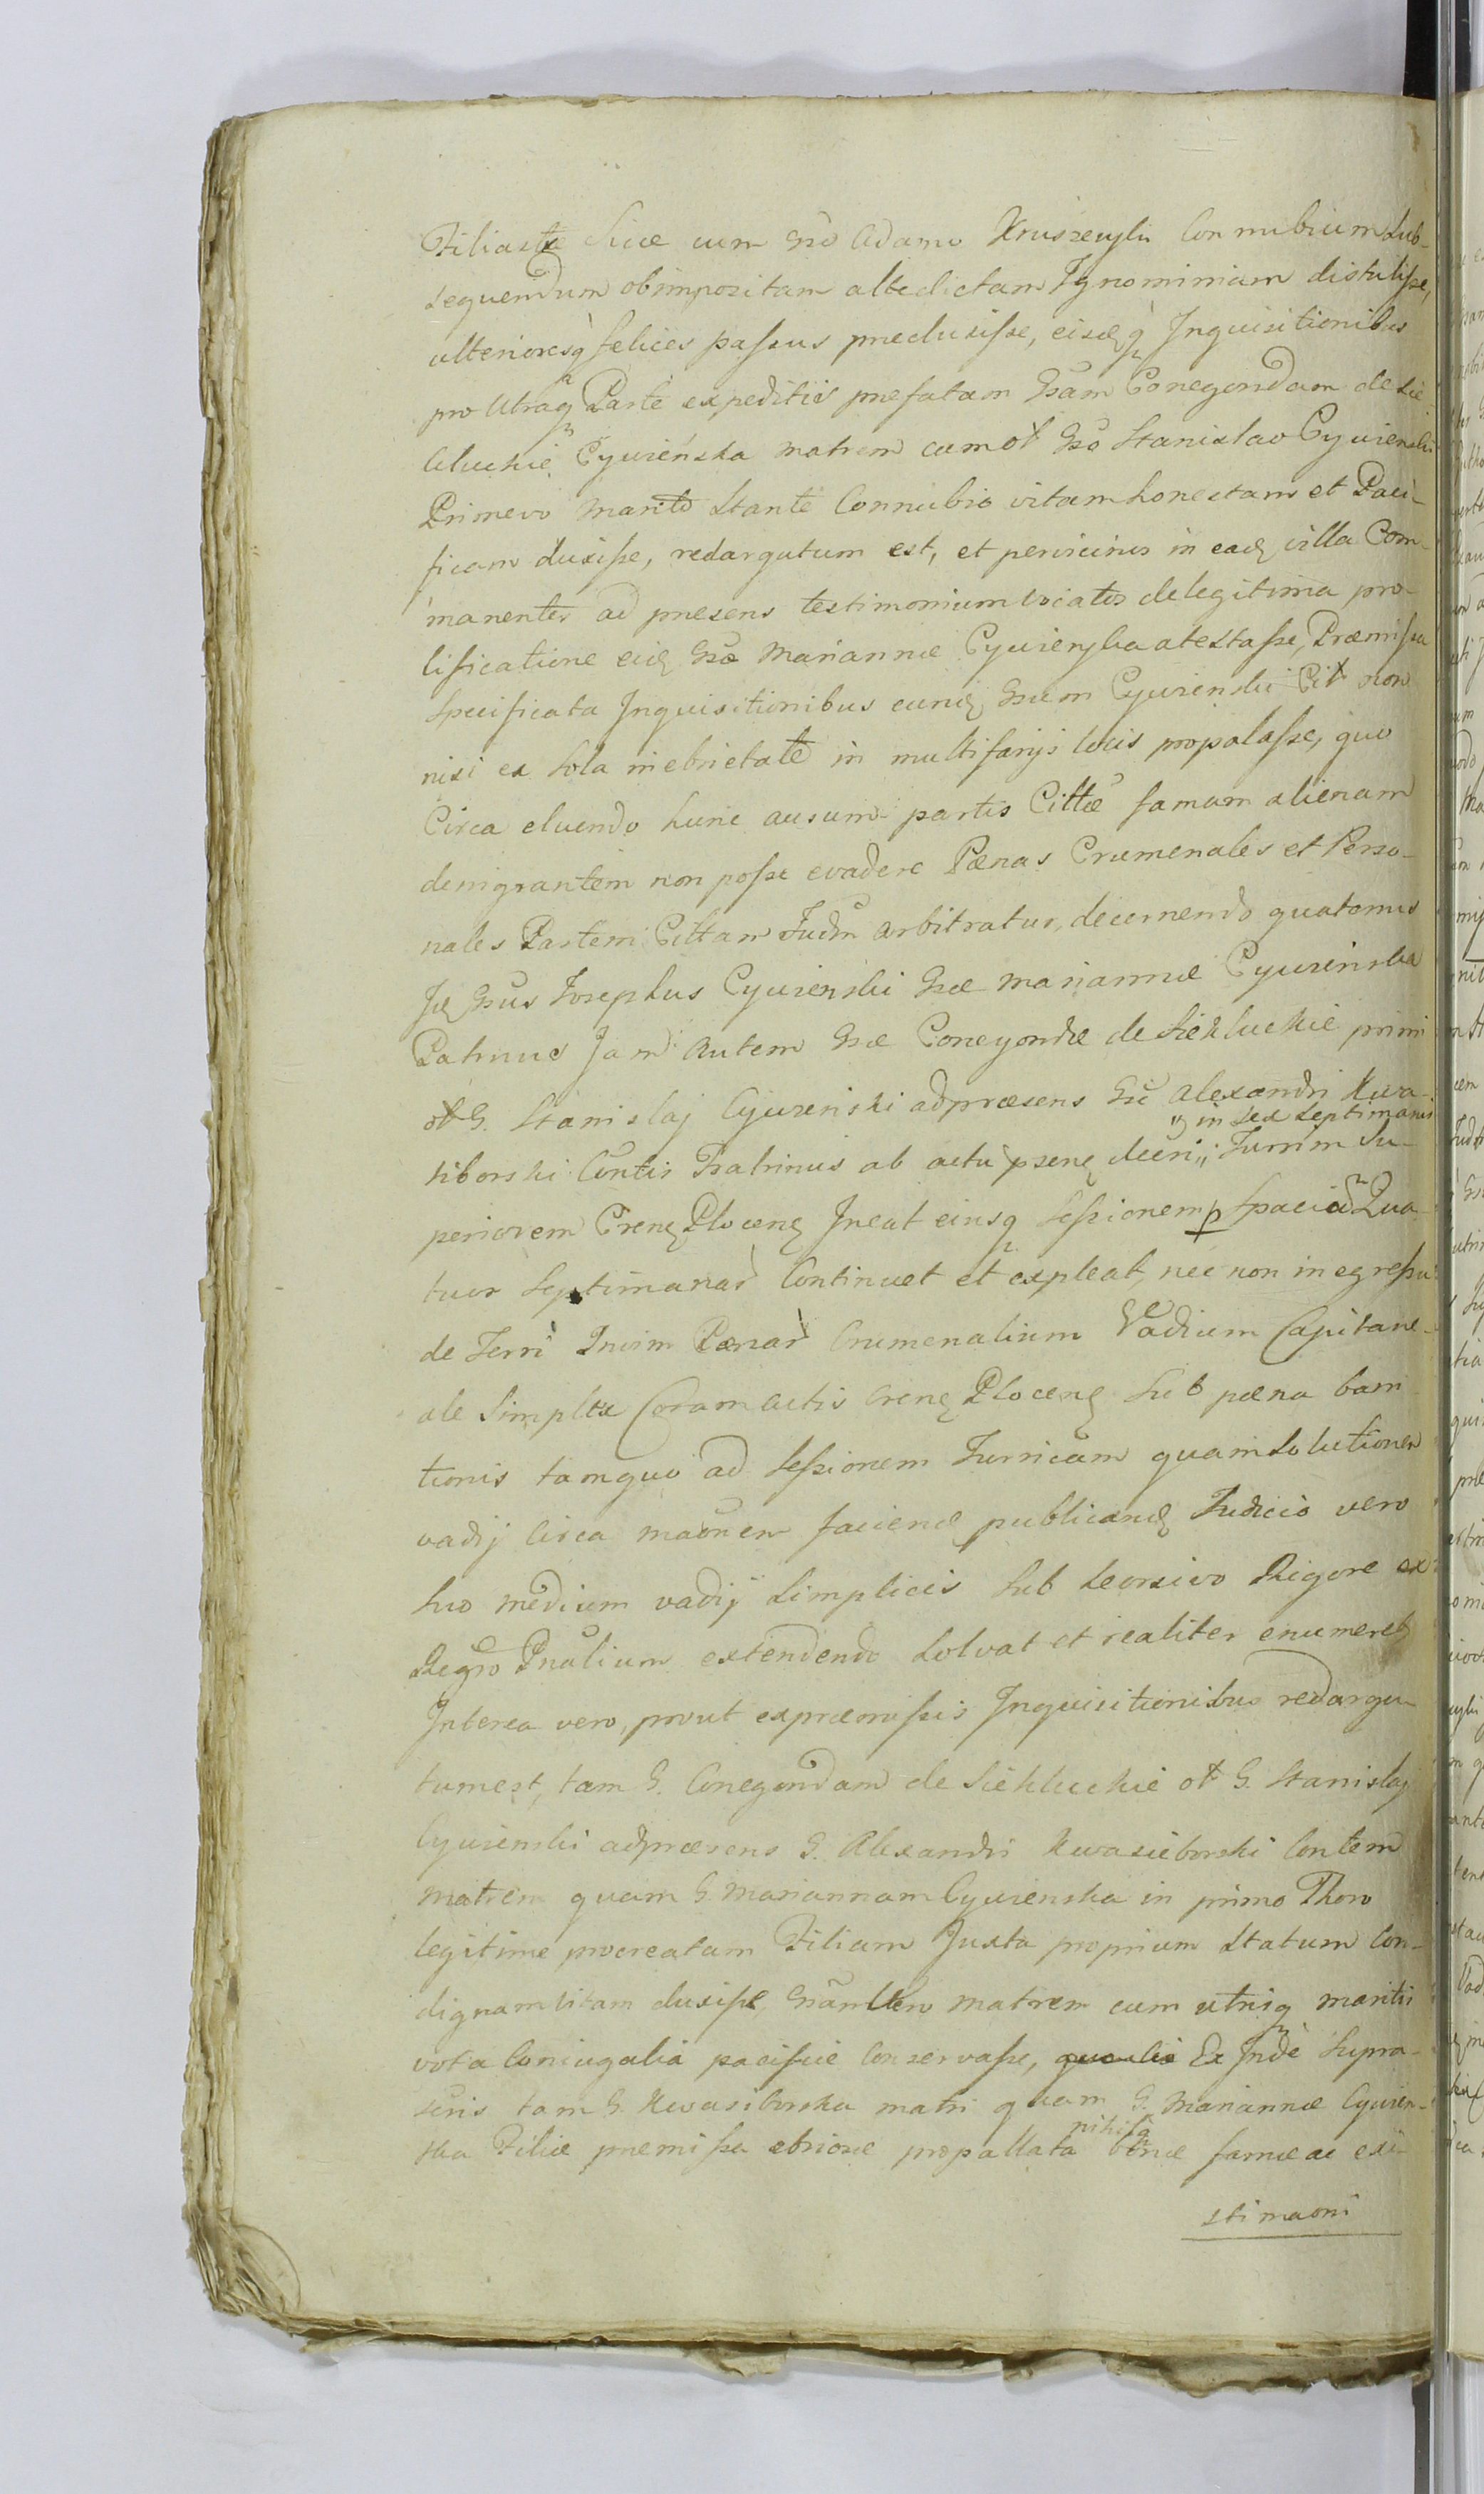 Filiastæ Suæ cum Gso Adamo Kruszewski Connubium Sub-
sequendum ob impositam altedictam Ignominiam distulisse,
ulterioresq felices passus preclusisse, eisdq Inquisitionibus
pro Utraq Parte expeditis prefatam Gsam Conegondam de Sie
kluckie Cywińska matrem cum ol Gso Stanislao Cywienski
Primevo Marito Stante Connubio vitam honestam et Paci-
ficam duxisse, redargutum est, et pervicinos in eadq villa Com-
manentes ad presens testimonium vocatos de legitima pro-
lificatione eidq Gsæ Mariannæ Cywienska atestasse, Præmissa
Specificata Inquisitionibus eundq Gsum Cywienski Cit non
nisi ex Sola inebrietate in multifarijs locis propalasse, quo
Circa eluendo hunc ausum partis Cittæ famam alienam
denigrantem non posse evadere Pænas Crumenales et Perso-
nales Partem Cittam Judm arbitratur, decernendo quatenus
Idq Gsus Josephus Cywienski Gsæ Mariannæ Cywienska
Patruus Jam autem Gsæ Conegondæ de Siekluckie primi
ol G. Stanislaj Cywienski ad præsens Gsi Alexandri Kwa-
" in sex Septimanis
siborski Contis Fratrinus ab actu psenq decri " Turrim Su-
periorem Crenq Plocenq Ineat eiusq Sessionem p Spaciu Qua-
tuor Septimanar Continuet et expleat, nec non in egressu
de Terri Invim Pænar Crumenalium Vadium Capitane-
ale Simplex Coram Actis Crenq Plocenq Sub pæna bani
tionis tam quo ad Sessionem Turricam quam Solutionem
vadij Circa maonem faciendq publicandq Judicio vero
huo medium vadij Simplicis Sub Seorsivo Rigore ex
Regro Pnalium extendendo Solvat et realiter enumeret
Interea vero, prout ex præmissis Inquisitionibus redargu-
tum est, tam G. Conegondam de Siekluckie ol G. Stanislaj
Cywienski ad præsens G. Alexandri Kwasieborski Contem
Matrem quam G. Mariannam Cywienska in primo Thoro
legitime procreatam Filiam Juxta proprium Statum Con-
dignam Vitam duxisse, Gsam Vero Matrem cum utriq mariti
vota Coniugalia pacifice Conservasse, Ex Inde Supra-
scris tam G. Kwasiborska matri quam G. Mariannæ Cywien-
nihil
ska Filiæ premissa ebriose propallata bonæ famæ ac exi-
stimaoni